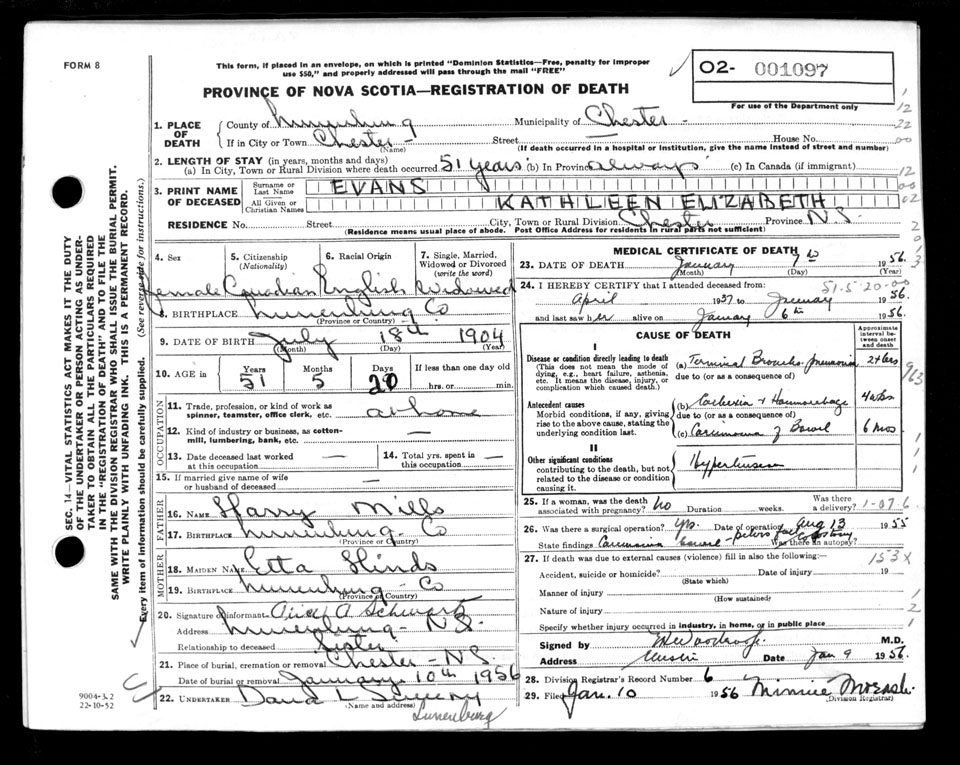 FORM 8
This form, if placed in an envelope, on which is printed "Dominion Statistics—Free, penalty for improper
use $50," and properly addressed will pass through the mail "FREE"
02- 001097
PROVINCE OF NOVA SCOTIA—REGISTRATION OF DEATH
For use of the Department only
1. PLACE OF DEATH
County of Lunenburg Municipality of Chester
If in City or Town Chester Street House No.
(Name) (If death occurred in a hospital or institution, give the name instead of street and number)
2. LENGTH OF STAY (in years, months and days)
(a) In City, Town or Rural Division where death occurred 51 years (b) In Province always (c) In Canada (if immigrant)
3. PRINT NAME OF DECEASED
Surname or Last Name EVANS
All Given or Christian Names KATHLEEN ELIZABETH
RESIDENCE No. Street City, Town or Rural Division Chester Province N.S.
(Residence means usual place of abode. Post Office Address for residents in rural parts not sufficient)
4. Sex
female
5. Citizenship (Nationality)
Canadian
6. Racial Origin
English
7. Single, Married, Widowed or Divorced (write the word)
Widowed
8. BIRTHPLACE Lunenburg Co
(Province or Country)
9. DATE OF BIRTH July 18th 1904
(Month) (Day) (Year)
10. AGE in Years Months Days If less than one day old
51 5 20 hrs. or min.
OCCUPATION
11. Trade, profession, or kind of work as
spinner, teamster, office clerk, etc. at home
12. Kind of industry or business, as cotton-
mill, lumbering, bank, etc. —
13. Date deceased last worked
at this occupation —
14. Total yrs. spent in
this occupation —
15. If married give name of wife
or husband of deceased —
FATHER
16. NAME Harry Mills
17. BIRTHPLACE Lunenburg Co
(Province or Country)
MOTHER
18. MAIDEN NAME Etta Hinds
19. BIRTHPLACE Lunenburg Co
(Province or Country)
20. Signature of informant A Schwartz
Address Lunenburg - N.S.
Relationship to deceased Sister
21. Place of burial, cremation or removal Chester - N.S.
Date of burial or removal January 10th 1956
22. UNDERTAKER David L
(Name and address)
Lunenburg
MEDICAL CERTIFICATE OF DEATH
23. DATE OF DEATH January 1956
(Month) (Day) (Year)
24. I HEREBY CERTIFY that I attended deceased from:
51-5-20-00
April 1937 to January 1956.
and last saw her alive on January 6th 1956.
CAUSE OF DEATH
Approximate interval between onset and death
I
Disease or condition directly leading to death
(This does not mean the mode of dying, e.g., heart failure, asthenia, etc. It means the disease, injury, or complication which caused death.)
(a) Terminal Broncho-pneumonia
due to (or as a consequence of)
Antecedent causes
Morbid conditions, if any, giving rise to the above cause, stating the underlying condition last.
(b) Cachexia + Haemorrhage 4 wks
due to (or as a consequence of)
(c) Carcinoma of Bowel 6 mos
II
Other significant conditions
contributing to the death, but not related to the disease or condition causing it.
Hypertension
25. If a woman, was the death
associated with pregnancy? No Duration weeks. Was there a delivery?
1-07 6
26. Was there a surgical operation? Yes. Date of operation Aug 13 1955
State findings Carcinoma bowel Was there an autopsy?
27. If death was due to external causes (violence) fill in also the following:—
153X
Accident, suicide or homicide? Date of injury 19
(State which)
Manner of injury
(How sustained)
Nature of injury
Specify whether injury occurred in industry, in home, or in public place
Signed by M.D.
Address Date Jan 9 1956.
28. Division Registrar's Record Number 6
29. Filed Jan. 10 1956 Minnie
(Division Registrar)
SEC. 14—VITAL STATISTICS ACT MAKES IT THE DUTY
OF THE UNDERTAKER OR PERSON ACTING AS UNDER-
TAKER TO OBTAIN ALL THE PARTICULARS REQUIRED
IN THE "REGISTRATION OF DEATH" AND TO FILE THE
SAME WITH THE DIVISION REGISTRAR WHO SHALL ISSUE THE BURIAL PERMIT.
WRITE PLAINLY WITH UNFADING INK. THIS IS A PERMANENT RECORD.
Every item of information should be carefully supplied. (See reverse side for instructions.)
9004-3.2
22-10-52